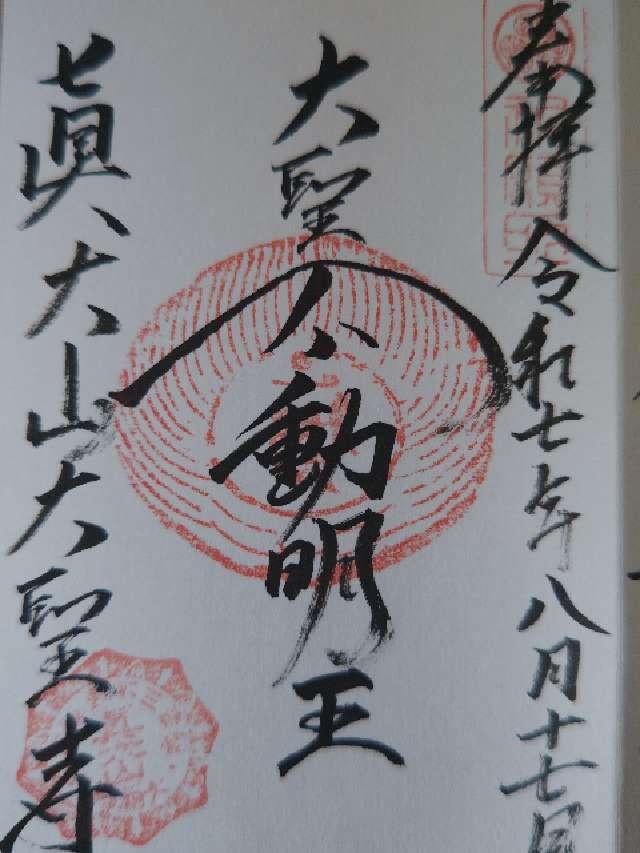 奉拝 令和七年八月十七日
大聖不動明王
眞大山大聖寺